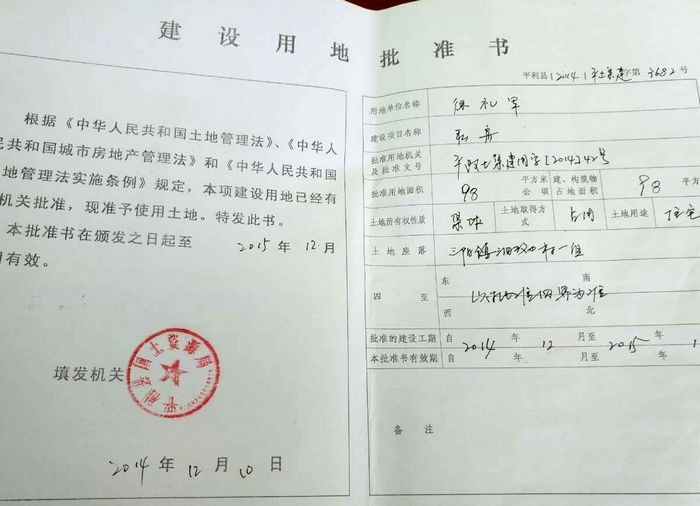 建设用地批准书
根据《中华人民共和国土地管理法》、《中华人
民共和国城市房地产管理法》和《中华人民共和国
地管理法实施条例》规定，本项建设用地已经有
机关批准，现准予使用土地。特发此书。
本批准书在颁发之日起至 2015 年 12 月
有效。
平利县国土资源局
填发机关
2014 年 12 月 10 日
平利县[2014]平土集建字第3682号
用地单位名称 徐礼军
建设项目名称
批准用地机关及批准文号 [2014]42号
批准用地面积 98 平方米 公项 建、构筑物占地面积 98 平方
土地所有权性质 集体 土地取得方式 占用 土地用途 住宅
土地座落 三阳镇 村一组
四至 东 南 西 北 以批准四界为准
批准的建设工期 自 2014 年 12 月至 2015 年 1
本批准书有效期 自 年 月至 年
备注